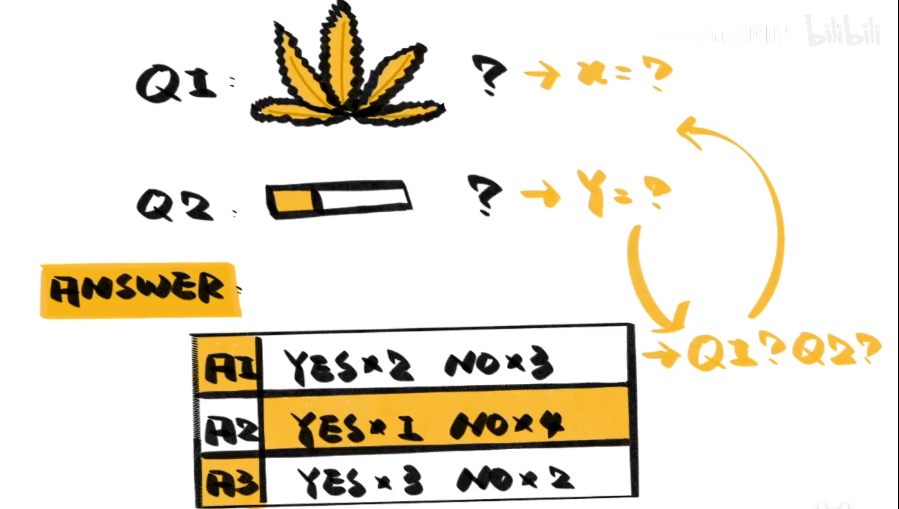 bilibili
Q1: ? → x=?
Q2: ? → Y=?
ANSWER:
→ Q1? Q2?
A1 YES×2 NO×3
A2 YES×1 NO×4
A3 YES×3 NO×2